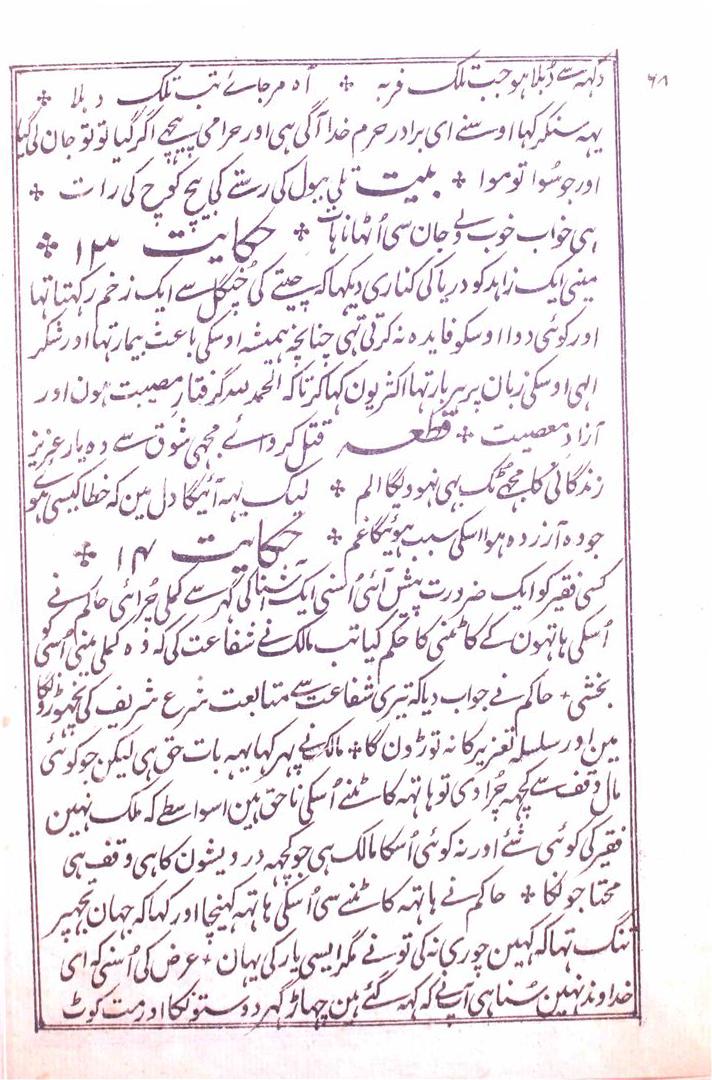 ۶۸
دکہہ سے دُبلا ہو جب تلک فربہ ٭ آہ مر جائے تب تلک دبلا ٭
یہہ سنکر کہا اوسنے ای برادر حرم خدا آگی ہی اور حرامی پیچھے اگر گیا تو تو جان لی گیا
اور جو سُوا تو موا ٭ بیت تلی ببول کی رستے کی بیچ کوچ کی رات ٭
ہی خواب خوب ولے جان سی اُٹھانا ہات ٭ حکایت ۱۳ ٭
مینی ایک زاہد کو دریا کی کناری دیکھا کہ چیتے کی چنگل سے ایک زخم رکھتا تھا
اور کوئی دوا اوسکو فایدہ نہ کرتی تھی چنانچہ ہمیشہ اوسکی باعث بیمار تھا اور شکر
الہی اوسکی زبان پر ہر بار تھا اکثر یون کہا کرتا کہ الحمد للہ گرفتارِ مصیبت ہون اور
آزادِ معصیت ٭ قطعہ قتل کروائے مجھی شوق سے وہ یارِ عزیز
زندگانی کا مجھے ٹک بھی نہو ویگا الم ٭ لیک یہہ آئیگا دل مین کہ خطا کیسی ہوئے
جو وہ آزردہ ہوا اسکی سبب ہوئیگا غم ٭ حکایت ۱۴ ٭
کسی فقیر کو ایک ضرورت پیش آئی اُسنی ایک آشنا کی گھر سے کملی چُرائی حاکم نے
اُسکی ہاتھون کے کاٹنی کا حکم کیا تب مالک نے شفاعت کی کہ وہ کملی مینی اُسی کو
بخشی ٭ حاکم نے جواب دیا کہ تیری شفاعت سے متابعت شرع شریف کی نچھوڑونگا
مین اور سلسلہ تعزیر کا نہ توڑون گا ٭ مالک نے پھر کہا یہہ بات حق ہی لیکن جو کوئی
مال وقف سے کچھہ چُرا دی تو ہاتہہ کاٹنے اُسکی ناحق ہین اسواسطے کہ ملک نہین
فقیر کی کوئی شئے اور نہ کوئی اُسکا مالک ہی جو کچھہ درویشون کا ہی وقف ہی
محتاجونکا ٭ حاکم نے ہاتہہ کاٹنے سی اُسکی ہاتہہ کھینچا اور کہا کہ جہان تجھپر
تنگ تھا کہ کہین چوری نہ کی تو نے مگر ایسی یار کی یہان ٭ عرض کی اُسنی کہ ای
خداوند نہین سُنا ہی آپنے کہ کہہ گئے ہین جھاڑ گھر دوستونکا اور مت کوٹ